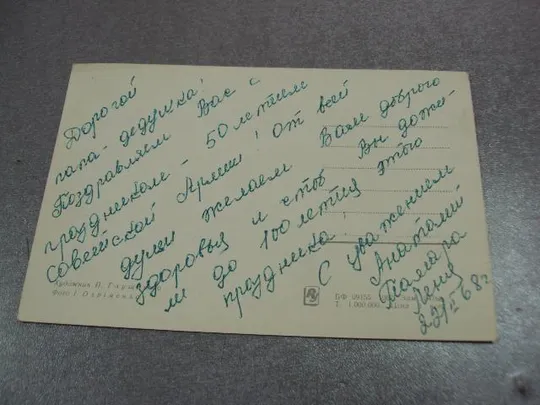 Дорогой
папа-дедушка!
Поздравляем Вас с
праздником - 50летием
советской Армии! От всей
души желаем Вам доброго
здоровья и чтоб Вы дожи-
ли до 100летия этого
праздника!
С уважением
Анатолий
Тамара
Леня
22/II 68г
Художник П.
Фото І
БФ
Т. 1 000 000